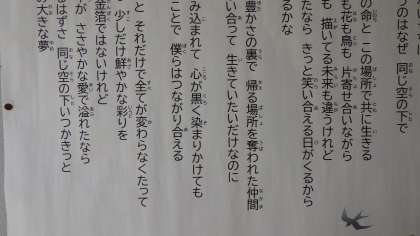 うのはなぜ 同じ空の下で
の命と この場所で共に生きる
も花も鳥も 片寄せ合いながら
も 描いてる未来も違うけれど
たなら きっと笑い合える日がくるから
るかな
豊かさの裏で 帰る場所を奪われた仲間
い合って 生きていたいだけなのに
み込まれて 心が黒く染まりかけても
ことで 僕らはつながり合える
と それだけで全てが変わらなくたって
少しだけ鮮やかな彩りを
金箔ではないけれど
が ささやかな愛で溢れたなら
るはずさ 同じ空の下いつかきっと
の大きな夢